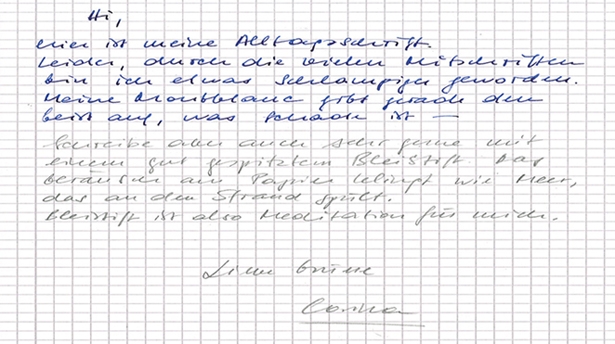 Hi,
hier ist meine Alltagsschrift.
Leider, durch die vielen Mitschriften
bin ich etwas schlampiger geworden.
Meine Montblanc gibt gerade den
Geist auf, was schade ist —
Schreibe aber auch sehr gerne mit
einem gut gespitztem Bleistift. Das
Geräusch am Papier klingt wie Meer,
das an den Strand spült.
Bleistift ist also Meditation für mich.
Liebe Grüße